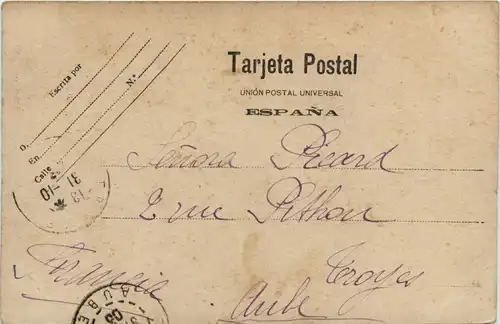 Tarjeta Postal
UNIÓN POSTAL UNIVERSAL
ESPAÑA
Escrita por
D.
En
N.º
Calle
Señora Picard
2 rue Pithou
Troyes
Aube
Francia
31
10
AUBE